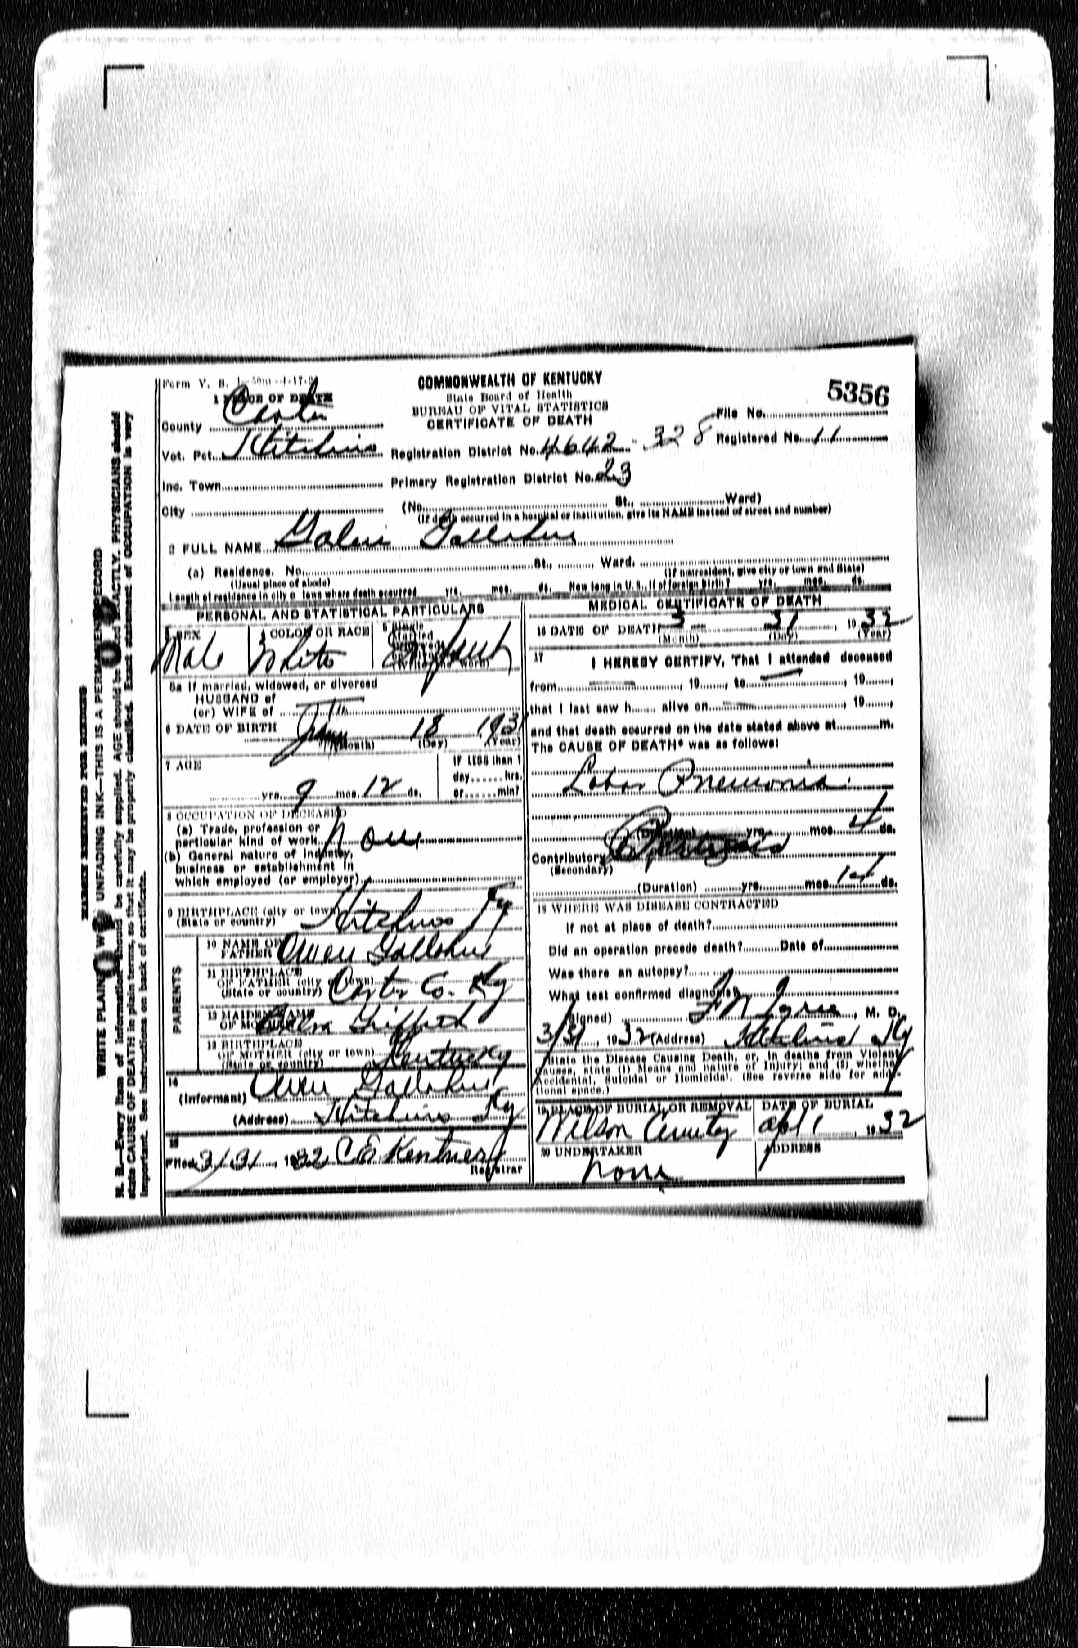 Form V. S. 1
COMMONWEALTH OF KENTUCKY
State Board of Health
BUREAU OF VITAL STATISTICS
CERTIFICATE OF DEATH
File No. 5356
Registered No. 11
1 PLACE OF DEATH
County Carter
Vot. Pct. Hitchins Registration District No. 4642 - 328
Inc. Town Primary Registration District No. 23
City (No. St., Ward)
(If death occurred in a hospital or institution, give its NAME instead of street and number)
2 FULL NAME Gallihue
(a) Residence. No. St., Ward.
(Usual place of abode) (If nonresident, give city or town and State)
Length of residence in city or town where death occurred yrs. mos. ds. How long in U. S., if of foreign birth? yrs. mos. ds.
PERSONAL AND STATISTICAL PARTICULARS
3 SEX Male
4 COLOR OR RACE White
5 Single
Married
5a If married, widowed, or divorced
HUSBAND of
(or) WIFE of
6 DATE OF BIRTH 18 1931
(Month) (Day) (Year)
7 AGE
yrs. 9 mos. 12 ds.
IF LESS than 1
day hrs.
or min?
8 OCCUPATION OF DECEASED
(a) Trade, profession or
particular kind of work none
(b) General nature of industry,
business or establishment in
which employed (or employer)
9 BIRTHPLACE (city or town) Hitchins Ky
(State or country)
PARENTS
10 NAME OF
FATHER Owen Gallihue
11 BIRTHPLACE
OF FATHER (city or town) Carter Co. Ky
(State or country)
12 MAIDEN NAME
OF MOTHER
13 BIRTHPLACE
OF MOTHER (city or town) Kentucky
(State or country)
14
(Informant) Owen Gallihue
(Address) Hitchins Ky
15
Filed 3/31, 1932 C E
Registrar
MEDICAL CERTIFICATE OF DEATH
16 DATE OF DEATH 3 31, 1932
(Month) (Day) (Year)
17 I HEREBY CERTIFY, That I attended deceased
from , 19 , to , 19 ,
that I last saw h alive on , 19 ,
and that death occurred on the date stated above at m.
The CAUSE OF DEATH* was as follows:
Lobar Pneumonia
(Duration) yrs. mos. 4 ds.
Contributory
(Secondary)
(Duration) yrs. mos. 14 ds.
18 WHERE WAS DISEASE CONTRACTED
if not at place of death?
Did an operation precede death? Date of
Was there an autopsy?
What test confirmed diagnosis?
(Signed) , M. D.
3/31, 1932 (Address) Hitchins Ky
*State the Disease Causing Death, or, in deaths from Violent
Causes, state (1) Means and nature of Injury; and (2) whether
Accidental, Suicidal or Homicidal. (See reverse side for addi-
tional space.)
19 PLACE OF BURIAL OR REMOVAL Wilson Cemetery
DATE OF BURIAL Apr 1, 1932
20 UNDERTAKER none
ADDRESS
MARGIN RESERVED FOR BINDING
WRITE PLAINLY WITH UNFADING INK—THIS IS A PERMANENT RECORD
N. B.—Every item of information should be carefully supplied. AGE should be stated EXACTLY. PHYSICIANS should
state CAUSE OF DEATH in plain terms, so that it may be properly classified. Exact statement of OCCUPATION is very
important. See instructions on back of certificate.